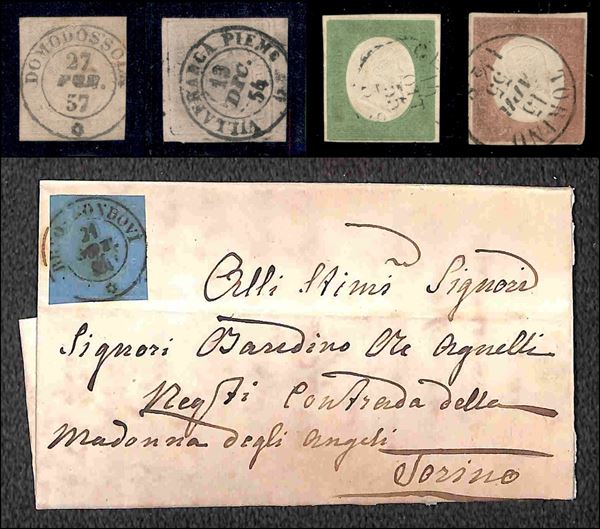 DOMODOSSOLA
27
FEB.
57
VILLAFRANCA PIEMte
13
DIC.
54
TORINO
MONDOVI
21
Alli Stimi Signori
Signori Baredino Re Agnelli
Negti Contrada della
Madonna degli Angeli
Torino